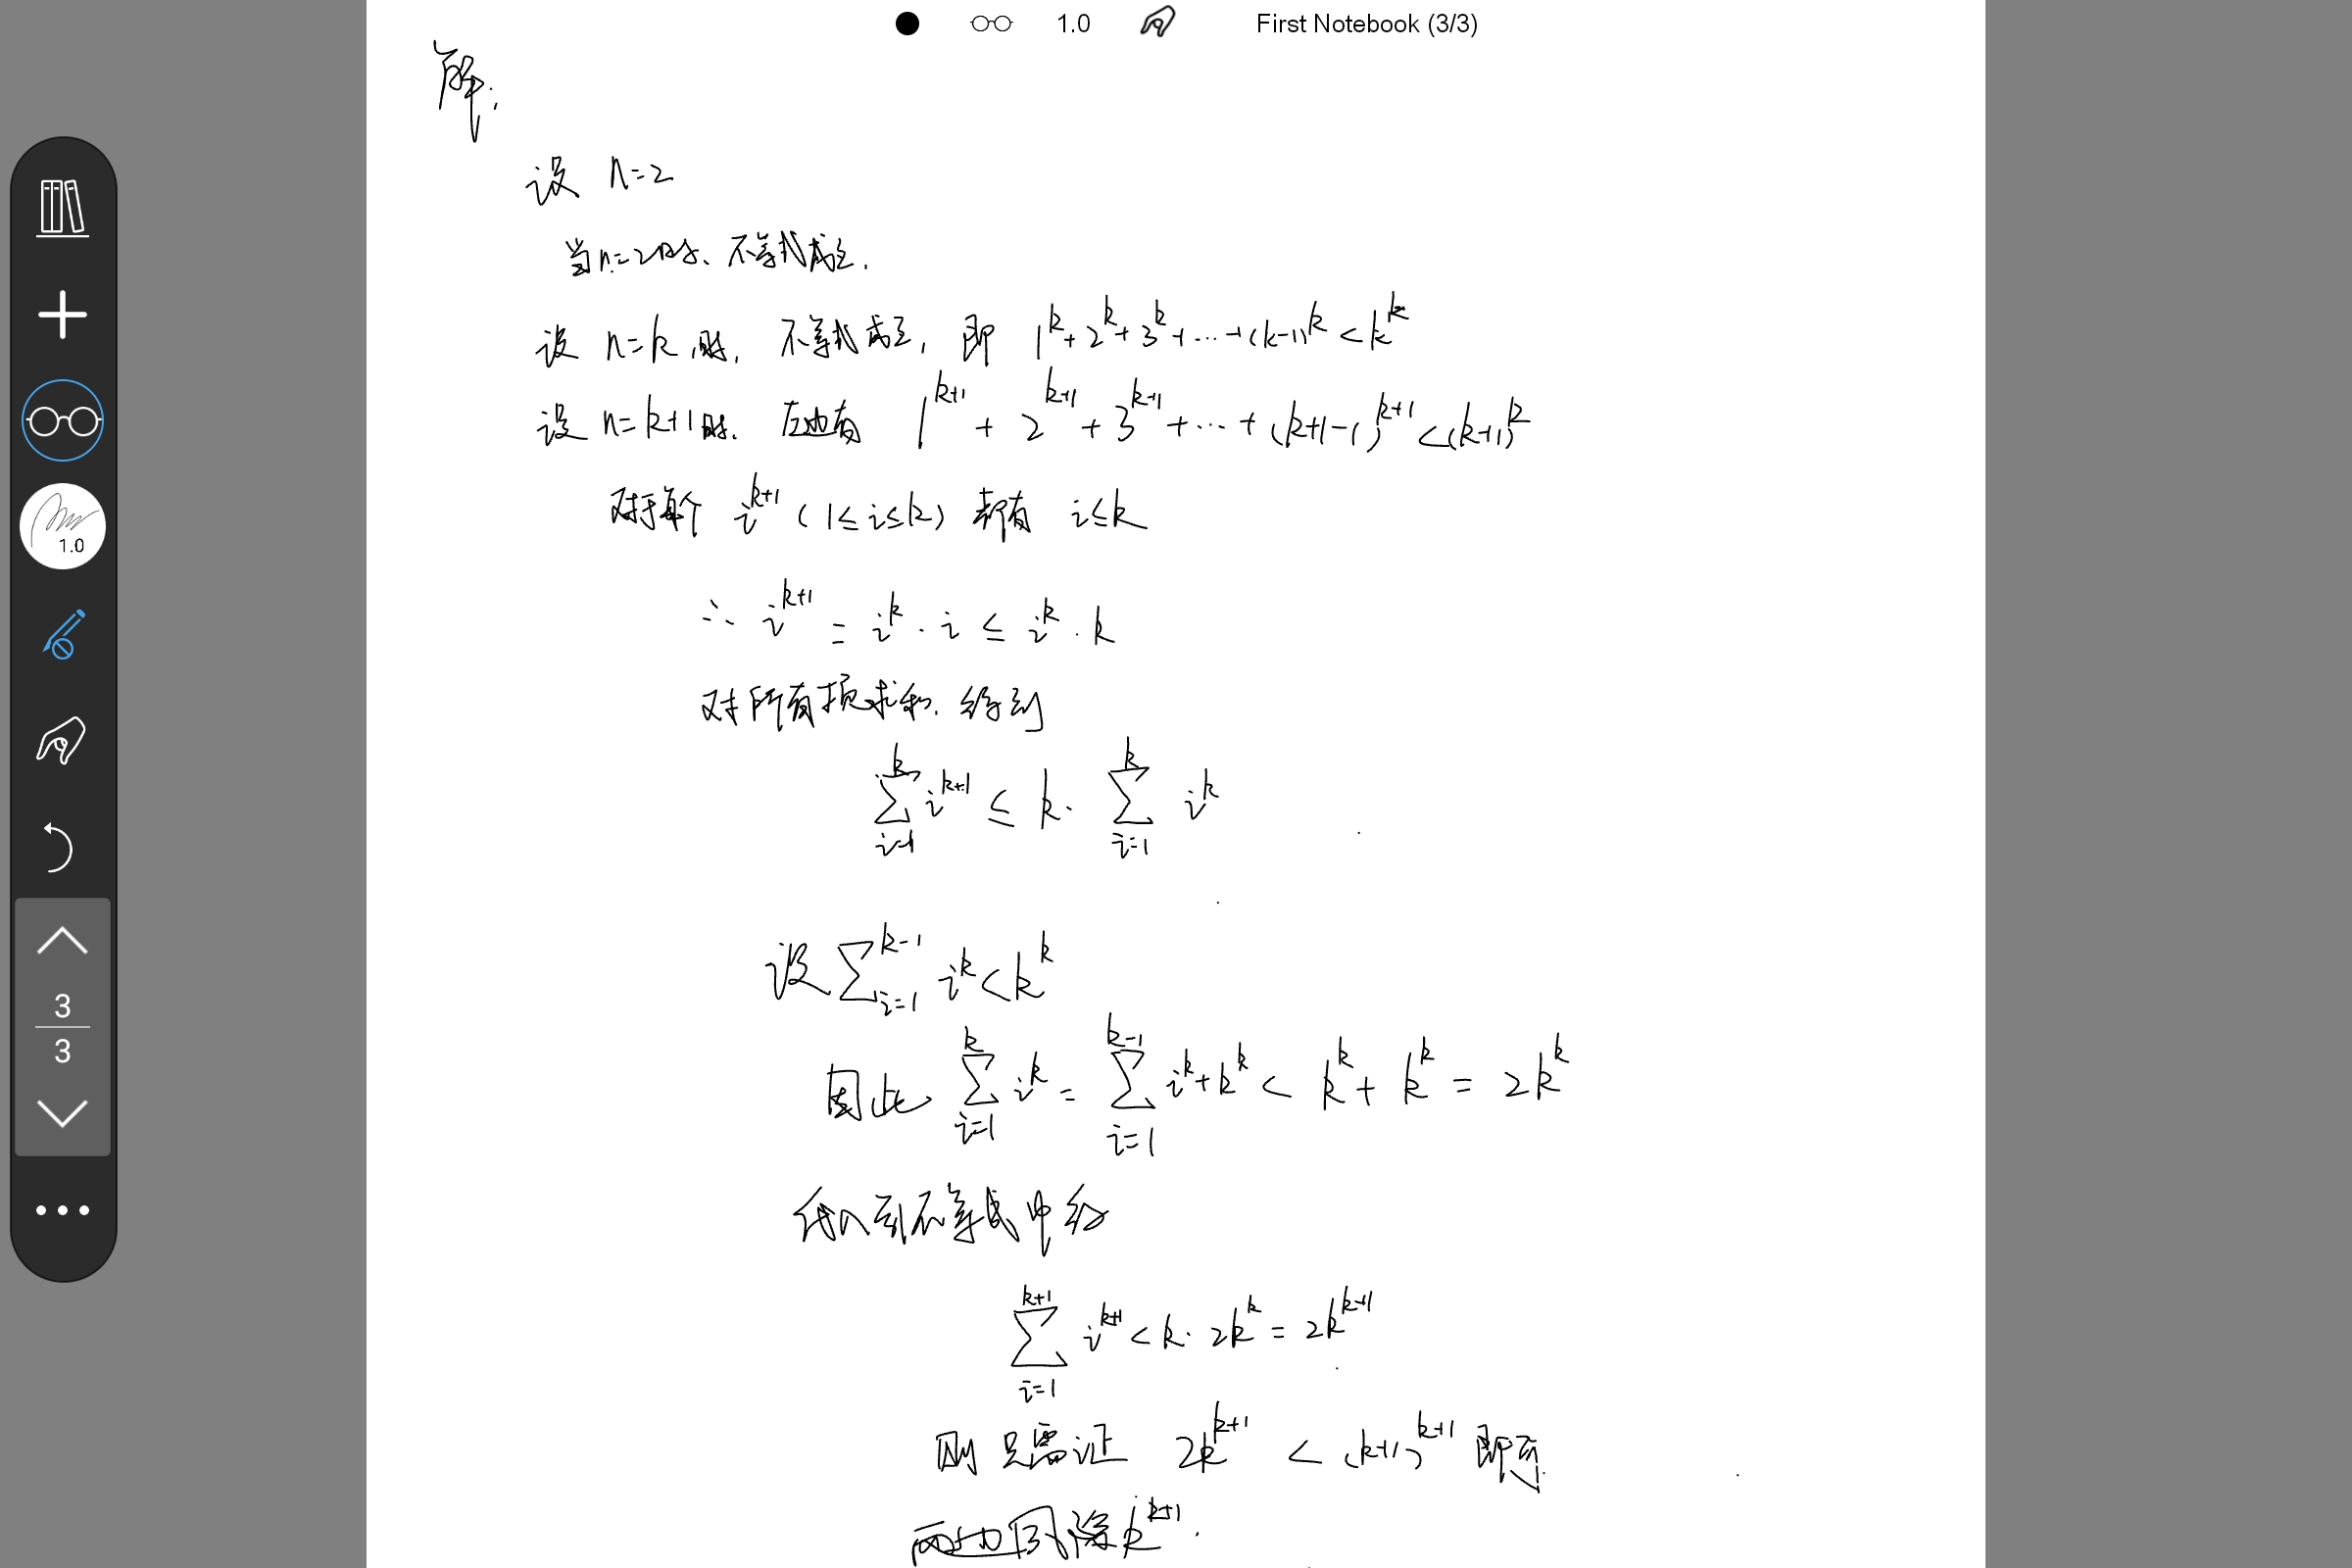 1.0 First Notebook (3/3)
解:
设 n=2
当n=2时、不等式成立.
设 n=k 时, 不等式成立, 即 1^k+2^k+3^k+...+(k-1)^k<k^k
设 n=k+1时. 左边有 1^{k+1} + 2^{k+1} + 3^{k+1} + ... + (k+1-1)^{k+1} <(k+1)^k
对于每个 i^{k+1} (1≤i≤k) 都有 i≤k
∴ i^{k+1} = i^k · i ≤ i^k · k
对所有项求和. 得到
\sum_{i=1}^{k} i^{k+1} ≤ k · \sum_{i=1}^{k} i^k
设 \sum_{i=1}^{k-1} i^k<k^k
因此 \sum_{i=1}^{k} i^k = \sum_{i=1}^{k-1} i^k+k^k < k^k + k^k = 2k^k
代入到不等式中给
\sum_{i=1}^{k+1} i^{k+1} < k · 2k^k = 2k^{k+1}
则只需证 2k^{k+1} < (k+1)^{k+1} 即可
两边同除k^{k+1}.
1.0
3
3